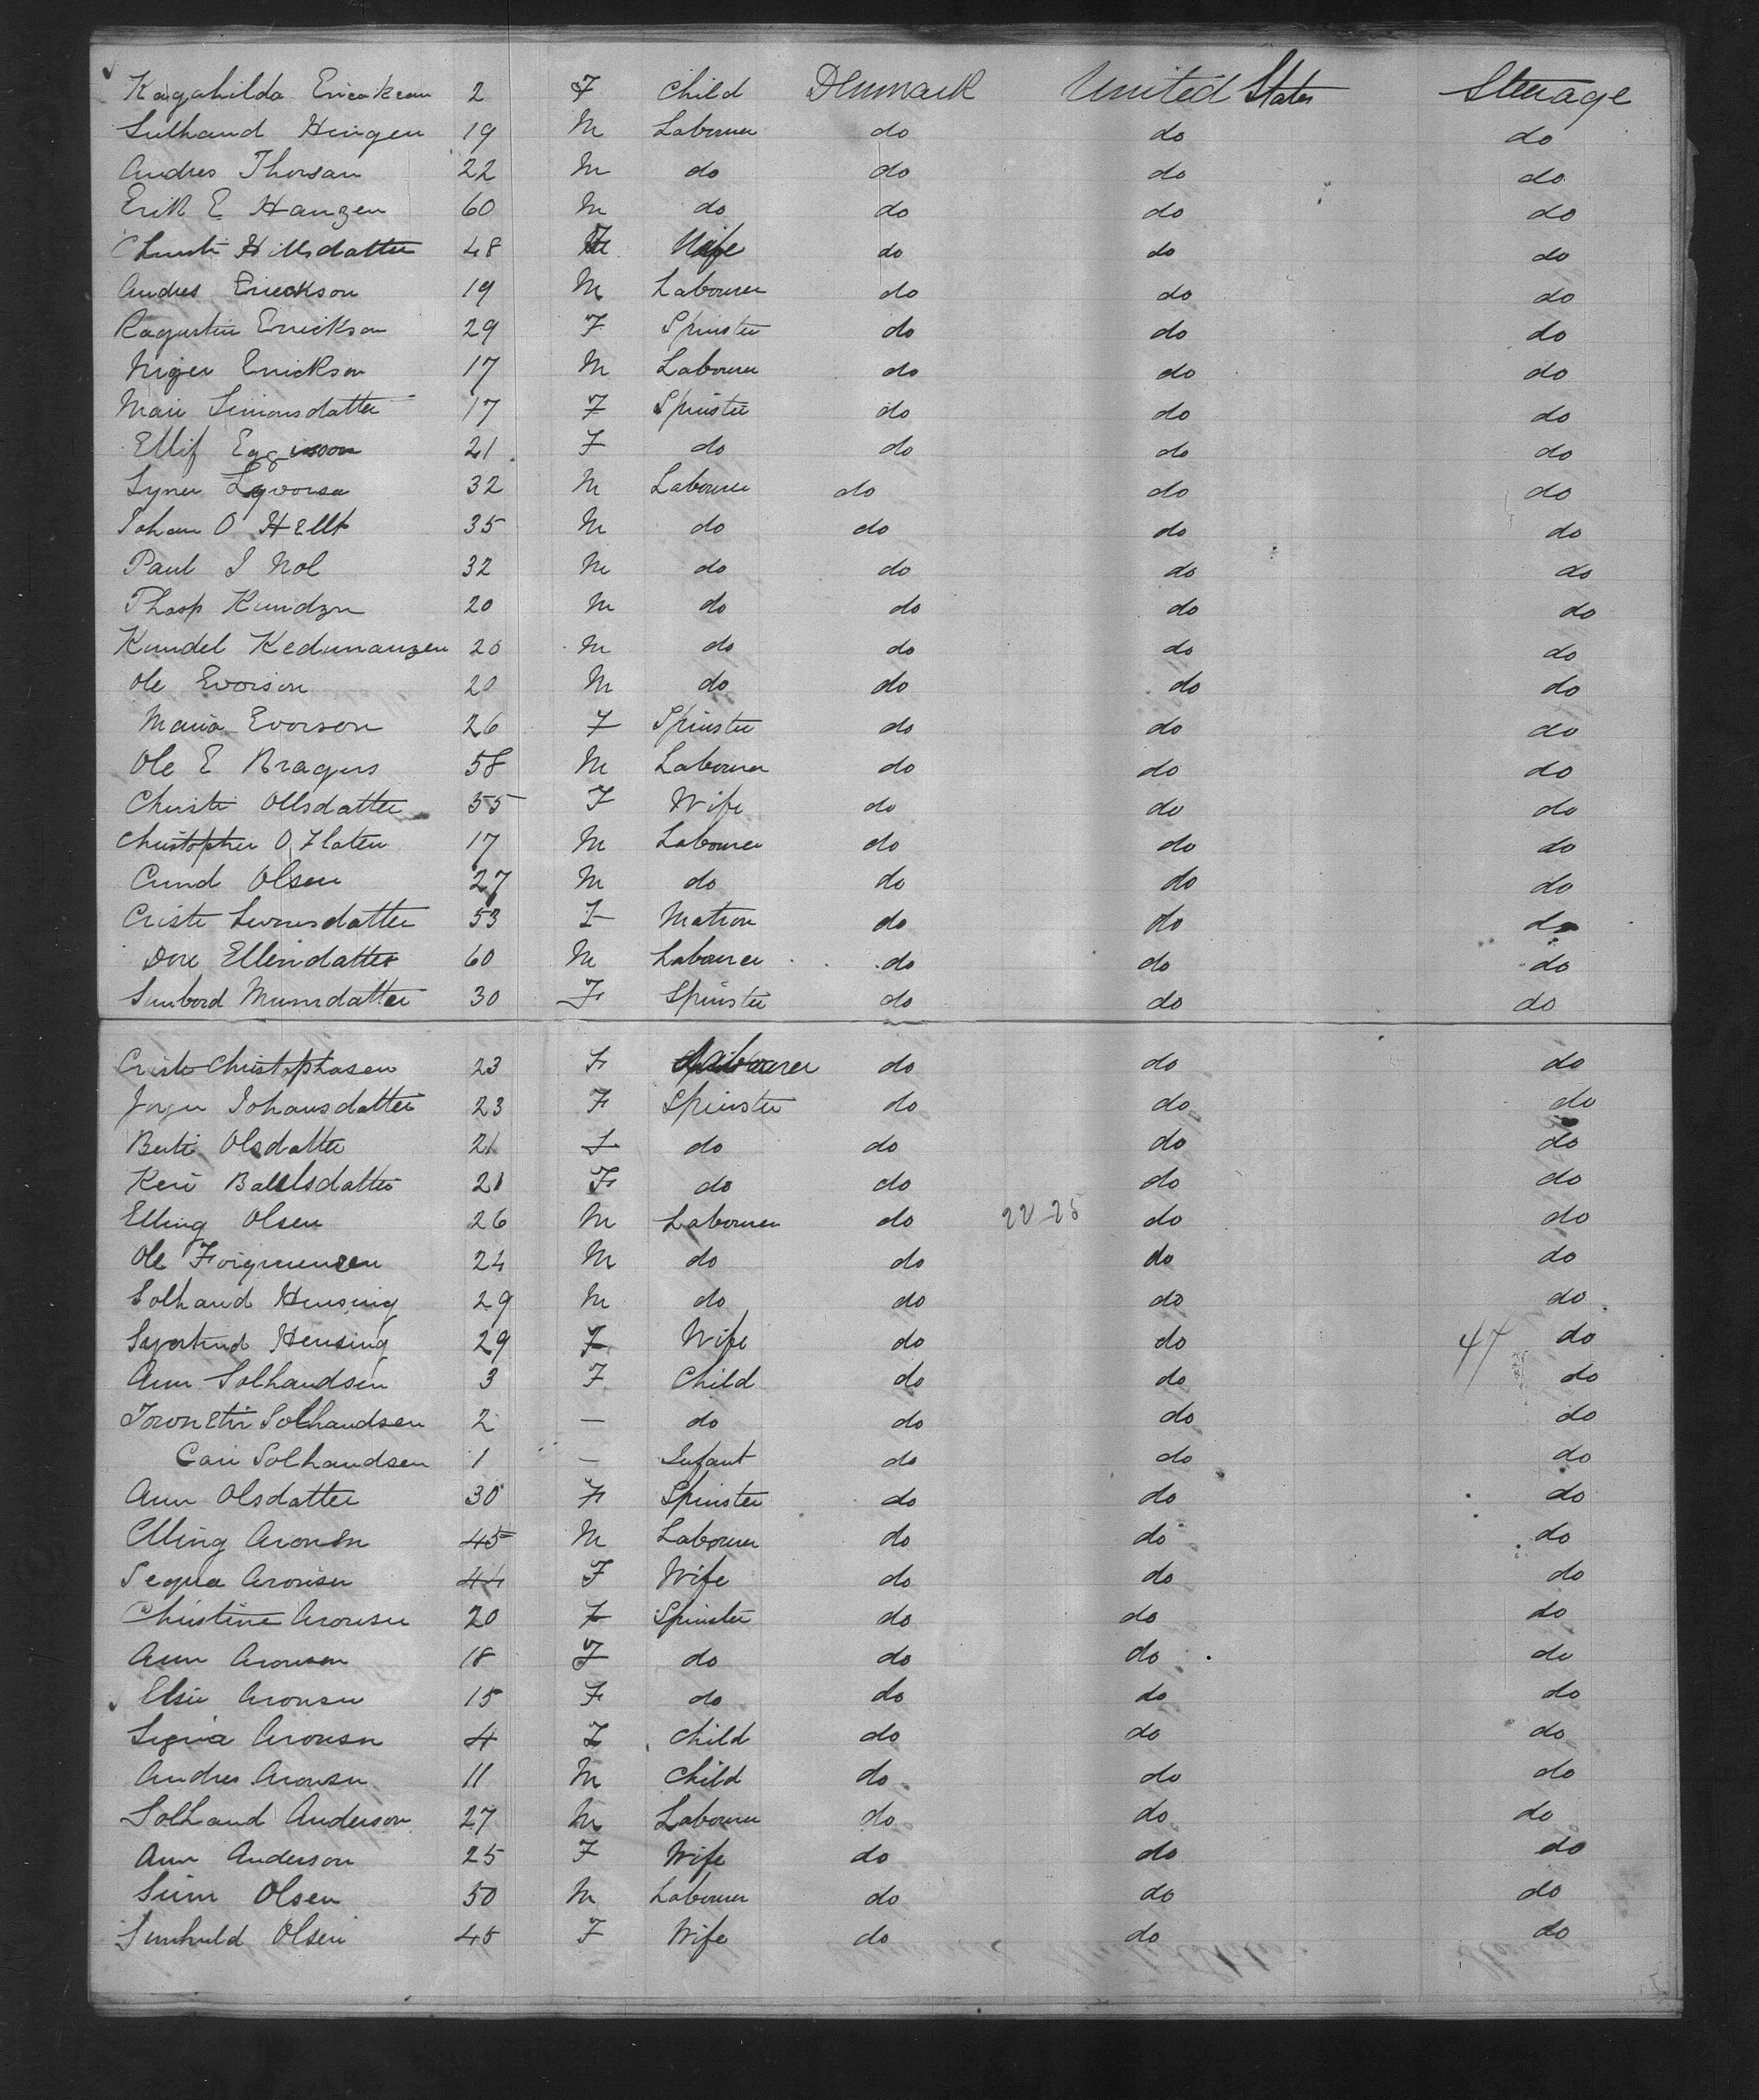 Kagahilda Ericakson 2 F Child Denmark United States Steerage
Sulhand Hingen 19 M Labourer do do do
Andres Thorsan 22 M do do do do
Erik E Hanzen 60 M do do do do
Christi Hillsdatter 48 F Wife do do do
Andres Erickson 19 M Labourer do do do
Ragustin Erickson 29 F Spinster do do do
Niger Erickson 17 M Labourer do do do
Mari Simonsdatter 17 F Spinster do do do
Ellif Eggisson 21 F do do do do
Syner Lqvorsa 32 M Labourer do do do
Johan O Hellt 35 M do do do do
Paul I Nol 32 M do do do do
Thosp Kundzn 20 M do do do do
Kundel Kedumanzen 20 M do do do do
Ole Evorson 20 M do do do do
Maria Evorson 26 F Spinster do do do
Ole E Bragus 58 M Labourer do do do
Christi Ollsdatter 55 F Wife do do do
Christopher O Flaten 17 M Labourer do do do
Cund Olsen 27 M do do do do
Criste Iversdatter 53 F Matron do do do
Dore Ellendatter 60 M Labourer do do do
Sunbord Munsdatter 30 F Spinster do do do
Criste Christophasen 23 F Labourer do do do
Jorgn Johansdatter 23 F Spinster do do do
Berti Olsdatter 21 F do do do do
Keri Ballsdatter 21 F do do do do
Elling Olsen 26 M Labourer do 22-25 do do
Ole Forgmunsen 24 M do do do do
Solhand Hensing 29 M do do do do
Syvertind Hensing 29 F Wife do do 47 do
Ann Solhandsen 3 F Child do do do
Toronstin Solhandsen 2 — do do do do
Cari Solhandsen 1 — Infant do do do
Ann Olsdatter 30 F Spinster do do do
Elling Aronsn 45 M Labourer do do do
Segna Aronsen 44 F Wife do do do
Christine Aronsen 20 F Spinster do do do
Ann Aronsen 18 F do do do do
Elsie Aronsen 15 F do do do do
Signa Aronsn 4 F Child do do do
Andres Aronsn 11 M Child do do do
Solhand Anderson 27 M Labourer do do do
Ann Anderson 25 F Wife do do do
Siim Olsen 50 M Labourer do do do
Sunhuld Olsen 45 F Wife do do do